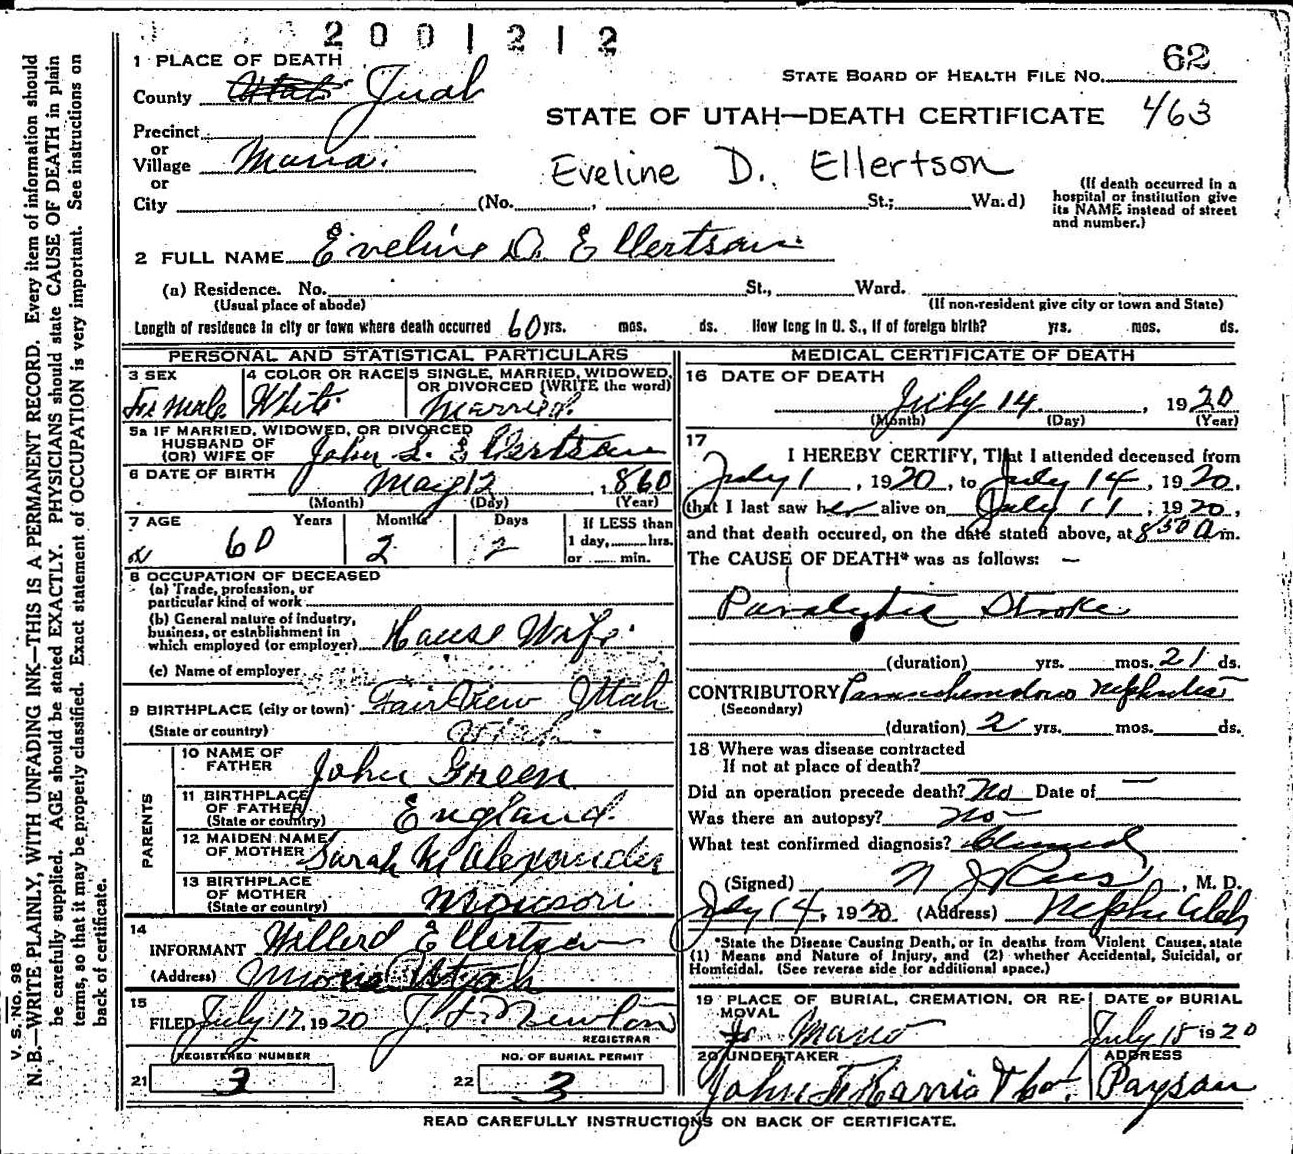 2001212
1 PLACE OF DEATH
County Utah Juab
STATE BOARD OF HEALTH FILE No. 62
STATE OF UTAH—DEATH CERTIFICATE 463
Precinct
or
Village Mona.
or
City (No. , St.; Wa.d)
Eveline D. Ellertson
(If death occurred in a
hospital or institution give
its NAME instead of street
and number.)
2 FULL NAME Eveline D. Ellertson
(a) Residence. No. St., Ward.
(Usual place of abode) (If non-resident give city or town and State)
Length of residence in city or town where death occurred 60 yrs. mos. ds. How long in U. S., if of foreign birth? yrs. mos. ds.
PERSONAL AND STATISTICAL PARTICULARS
3 SEX
Female
4 COLOR OR RACE
White
5 SINGLE, MARRIED, WIDOWED,
OR DIVORCED (WRITE the word)
Married
5a IF MARRIED, WIDOWED, OR DIVORCED
HUSBAND OF
(OR) WIFE OF John S. Ellertson
6 DATE OF BIRTH May 12, 1860
(Month) (Day) (Year)
7 AGE Years Months Days If LESS than
60 2 2 1 day, hrs.
or min.
8 OCCUPATION OF DECEASED
(a) Trade, profession, or
particular kind of work
(b) General nature of industry,
business, or establishment in
which employed (or employer) House Wife
(c) Name of employer
9 BIRTHPLACE (city or town) Fair View Utah
(State or country) Utah
PARENTS
10 NAME OF
FATHER John Green
11 BIRTHPLACE
OF FATHER
(State or country) England
12 MAIDEN NAME
OF MOTHER Sarah M Alexander
13 BIRTHPLACE
OF MOTHER
(State or country) Missouri
14
INFORMANT Willerd Ellertson
(Address) Mona Utah
15
FILED July 17, 1920 Newton
REGISTRAR
REGISTERED NUMBER
21 3
NO. OF BURIAL PERMIT
22 3
MEDICAL CERTIFICATE OF DEATH
16 DATE OF DEATH
July 14, 1920
(Month) (Day) (Year)
17
I HEREBY CERTIFY, That I attended deceased from
July 1, 1920, to July 14, 1920,
that I last saw her alive on July 11, 1920,
and that death occured, on the date stated above, at 8 50 A m.
The CAUSE OF DEATH* was as follows: —
Paralytic Stroke
(duration) yrs. mos. 21 ds.
CONTRIBUTORY Parenchymatous Nephritis
(Secondary)
(duration) 2 yrs. mos. ds.
18 Where was disease contracted
If not at place of death?
Did an operation precede death? No Date of —
Was there an autopsy? No
What test confirmed diagnosis? Clinical
(Signed) , M. D.
July 14, 1920 (Address) Nephi Utah
*State the Disease Causing Death, or in deaths from Violent Causes, state
(1) Means and Nature of Injury, and (2) whether Accidental, Suicidal, or
Homicidal. (See reverse side for additional space.)
19 PLACE OF BURIAL, CREMATION, OR RE-
MOVAL
Mona
DATE OF BURIAL
July 15 1920
20 UNDERTAKER
John
ADDRESS
Payson
READ CAREFULLY INSTRUCTIONS ON BACK OF CERTIFICATE.
V. S. No. 98
N.B.—WRITE PLAINLY, WITH UNFADING INK—THIS IS A PERMANENT RECORD. Every item of information should
be carefully supplied. AGE should be stated EXACTLY. PHYSICIANS should state CAUSE OF DEATH in plain
terms, so that it may be properly classified. Exact statement of OCCUPATION is very important. See instructions on
back of certificate.